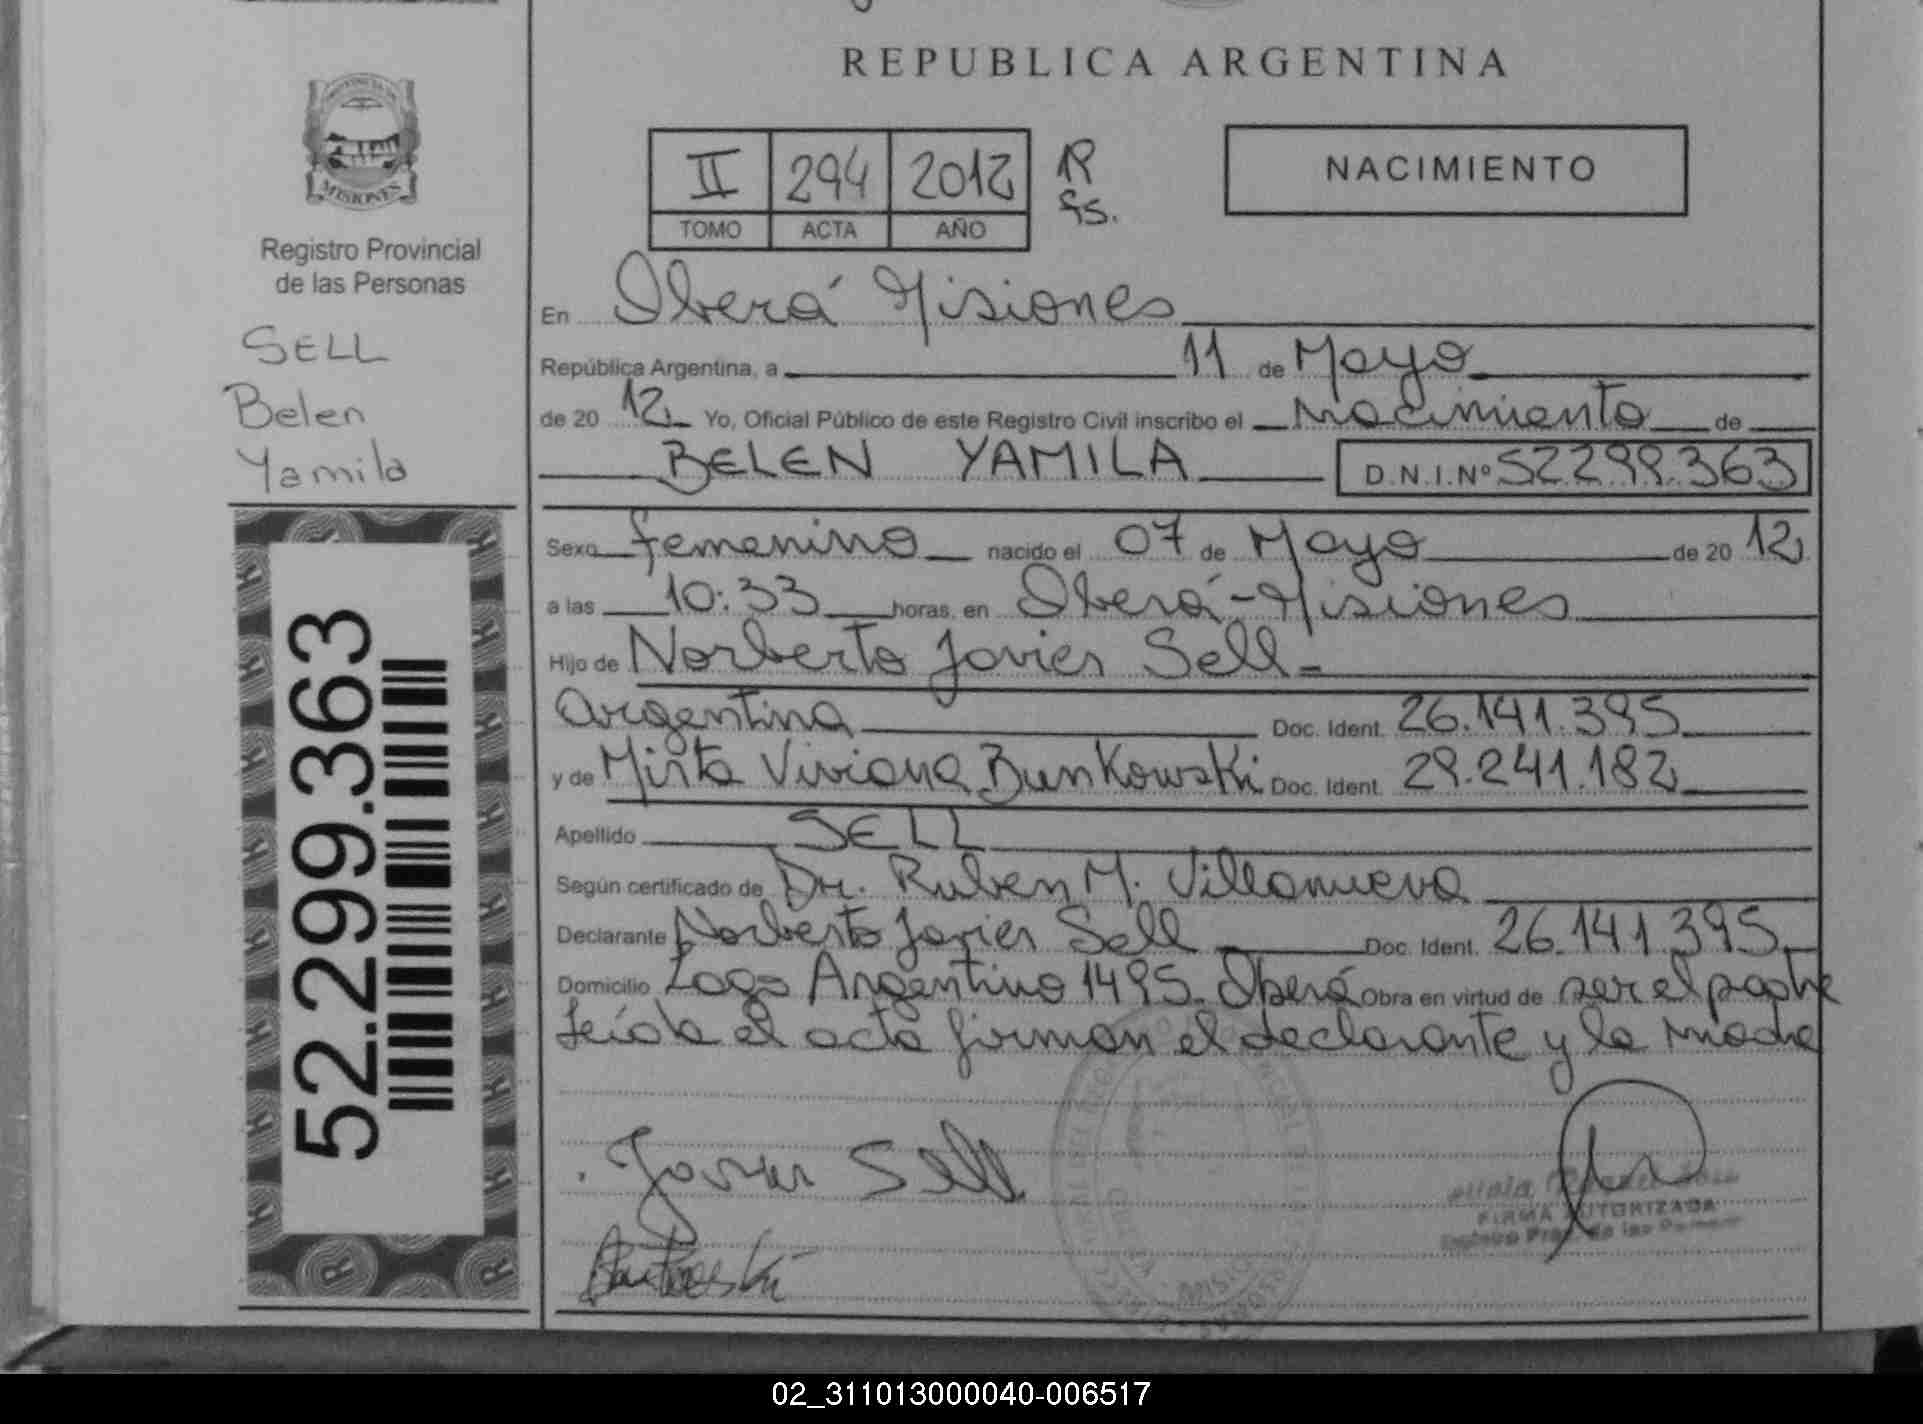 REPUBLICA ARGENTINA
MISIONES
Registro Provincial
de las Personas
SELL
Belen
Yamila
52.299.363
II 294 2012
TOMO ACTA AÑO
NACIMIENTO
En Oberá Misiones
República Argentina, a 11 de Mayo
de 20 12 Yo, Oficial Público de este Registro Civil inscribo el Nacimiento de
BELEN YAMILA D.N.I.Nº 52.299.363
Sexo femenino nacido el 07 de Mayo de 20 12
a las 10:33 horas, en Oberá-Misiones
Hijo de Norberto Javier Sell
Argentina Doc. Ident. 26.141.395
y de Mirta Viviana Bunkowski Doc. Ident. 29.241.182
Apellido SELL
Según certificado de Dr. Ruben M. Villanueva
Declarante Norberto Javier Sell Doc. Ident. 26.141.395
Domicilio Lago Argentino 1495. Oberá Obra en virtud de ser el padre
leída el acta firman el declarante y la madre
Javier Sell
FIRMA AUTORIZADA
02_311013000040-006517